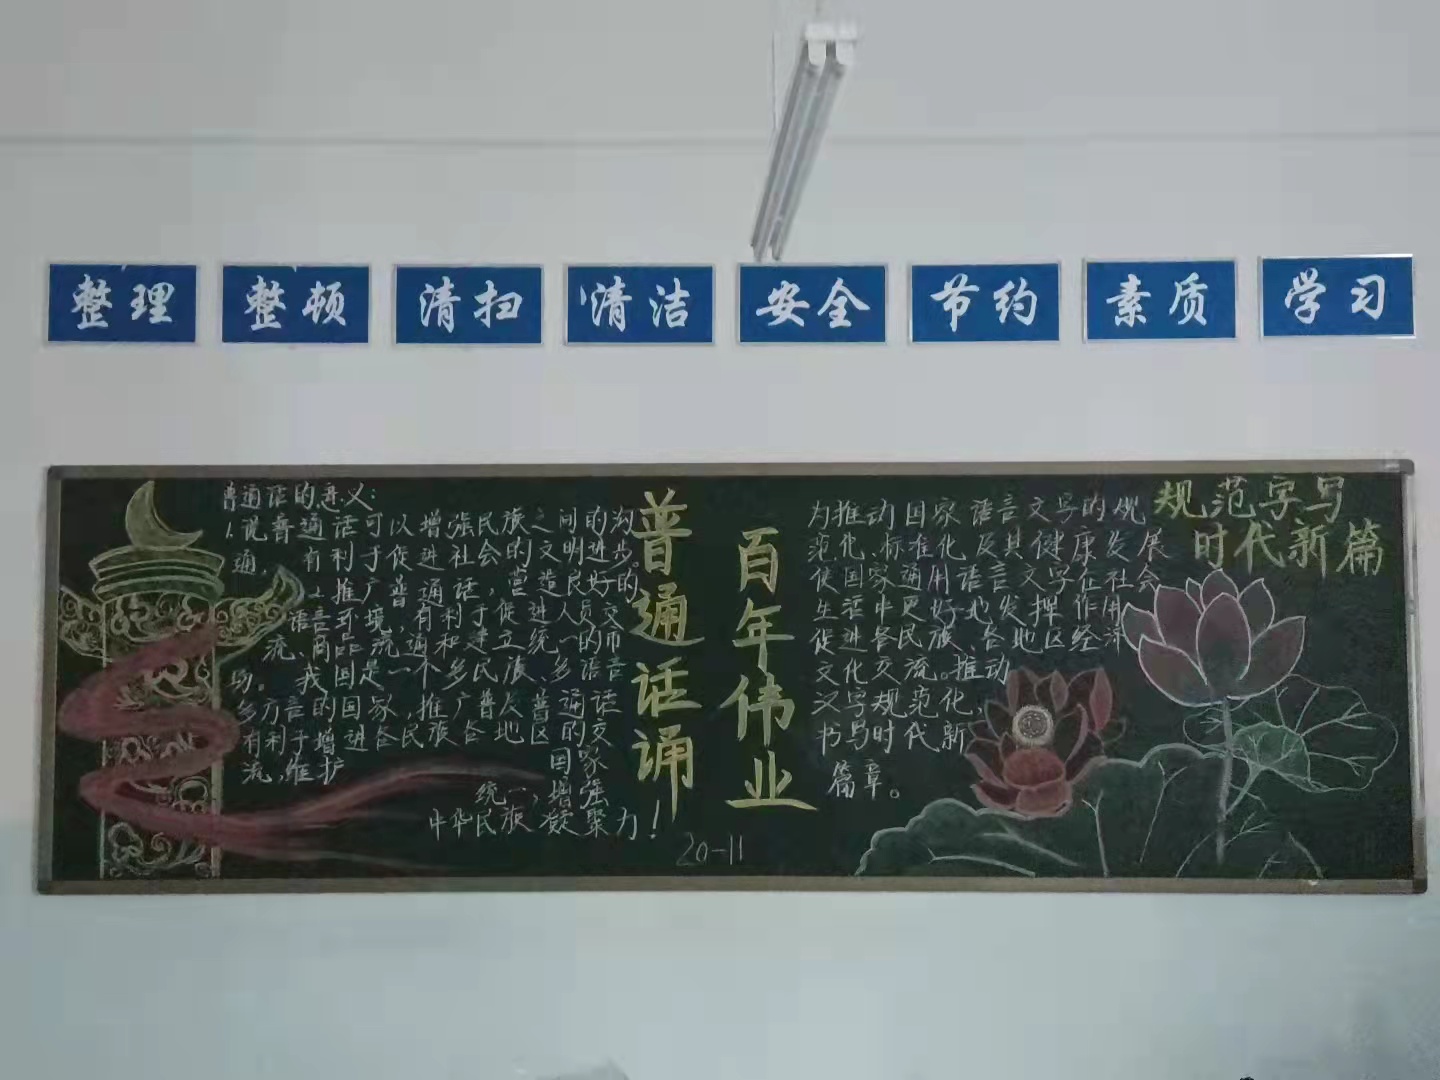 整理
整顿
清扫
清洁
安全
节约
素质
学习
普通话的意义:
1.说普通话可以增强民族之间的沟
通,有利于促进社会的文明进步。
2.推广普通话,营造良好的
语言环境,有利于促进人员交
流、商品流通和建立统一的市
场。我国是一个多民族、多语言
多方言的国家,推广普及普通话
有利于增进各民族各地区的交
流,维护国家
统一,增强
中华民族凝聚力!
普通话诵
百年伟业
20-11
为推动国家语言文字的规
范化、标准化及其健康发展
使国家通用语言文字在社会
生活中更好地发挥作用
促进各民族、各地区经济
文化交流。推动
汉字规范化,
书写时代新
篇章。
规范字写
时代新篇